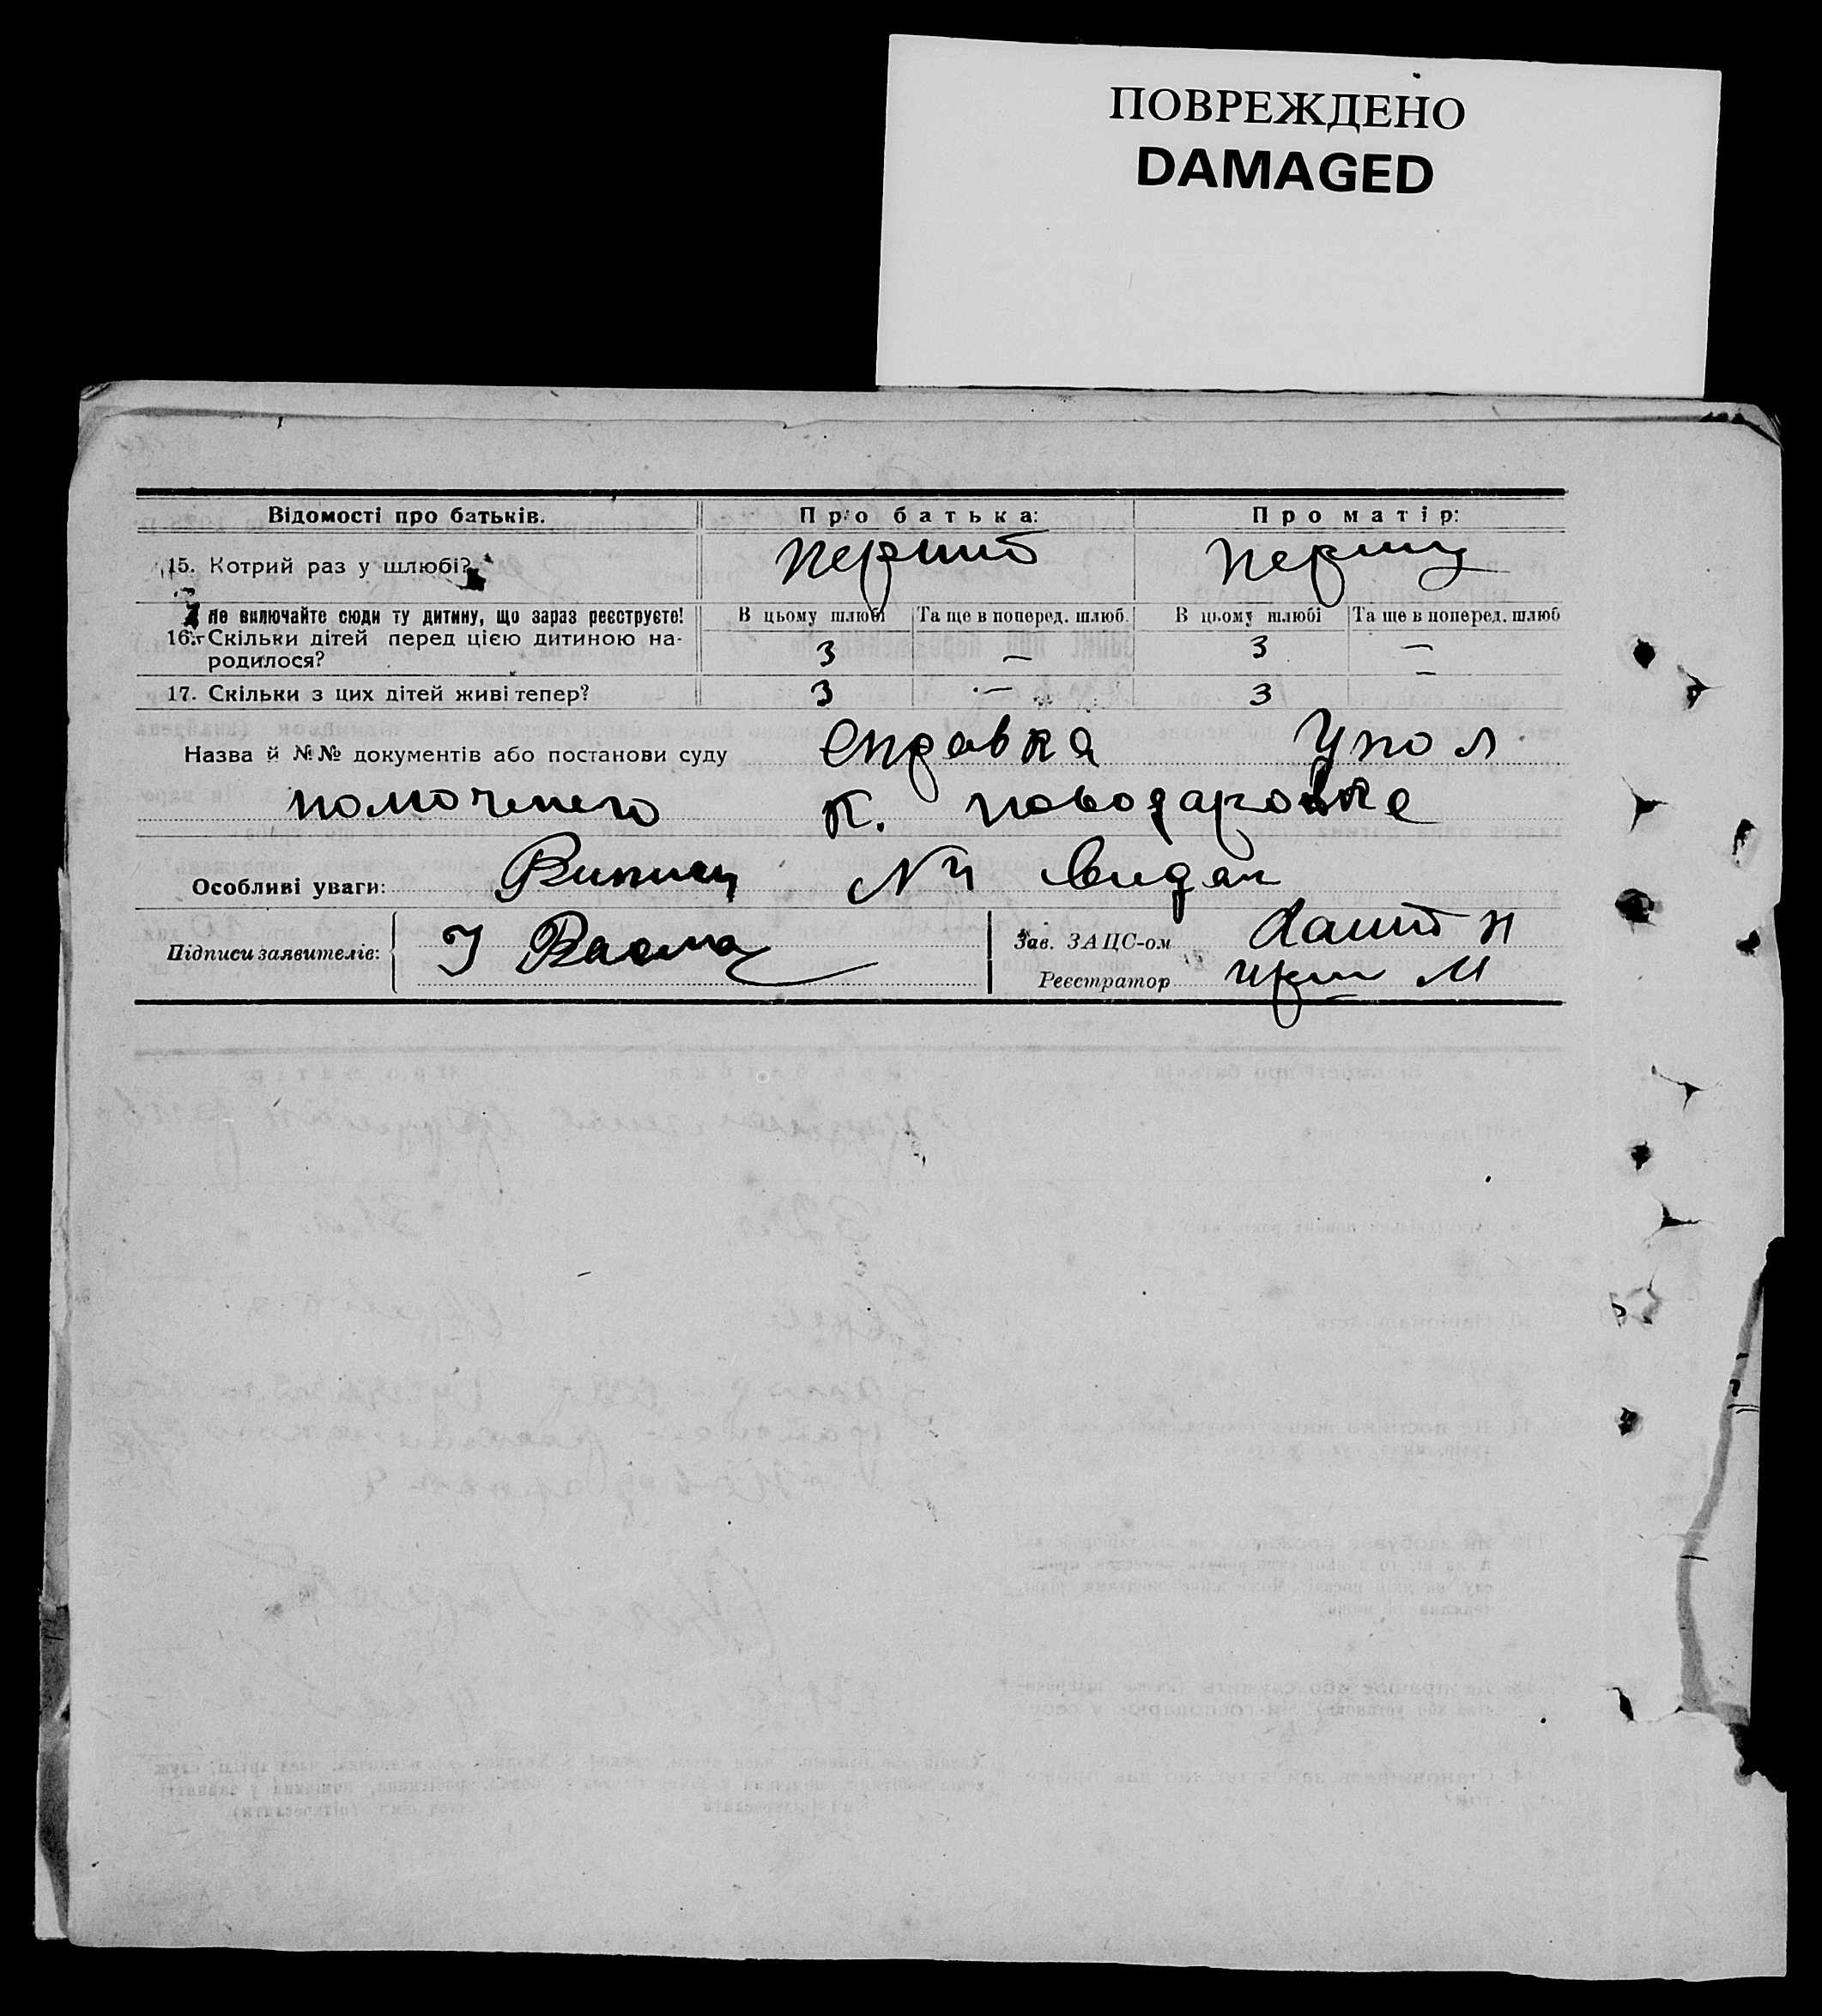 ПОВРЕЖДЕНО
DAMAGED
Відомості про батьків. Про батька: Про матір:
15. Котрий раз у шлюбі? перший першу
Не включайте сюди ту дитину, що зараз реєструєте! В цьому шлюбі Та ще в поперед. шлюб. В цьому шлюбі Та ще в поперед. шлюб
16. Скільки дітей перед цією дитиною на- 3 — 3 —
родилося?
17. Скільки з цих дітей живі тепер? 3 — 3 —
Назва й №№ документів або постанови суду справка Упол
номоченого К. новодаровке
Особливі уваги: Випис №4 видан
Підписи заявителів: Зав. ЗАЦС-ом
Реєстратор